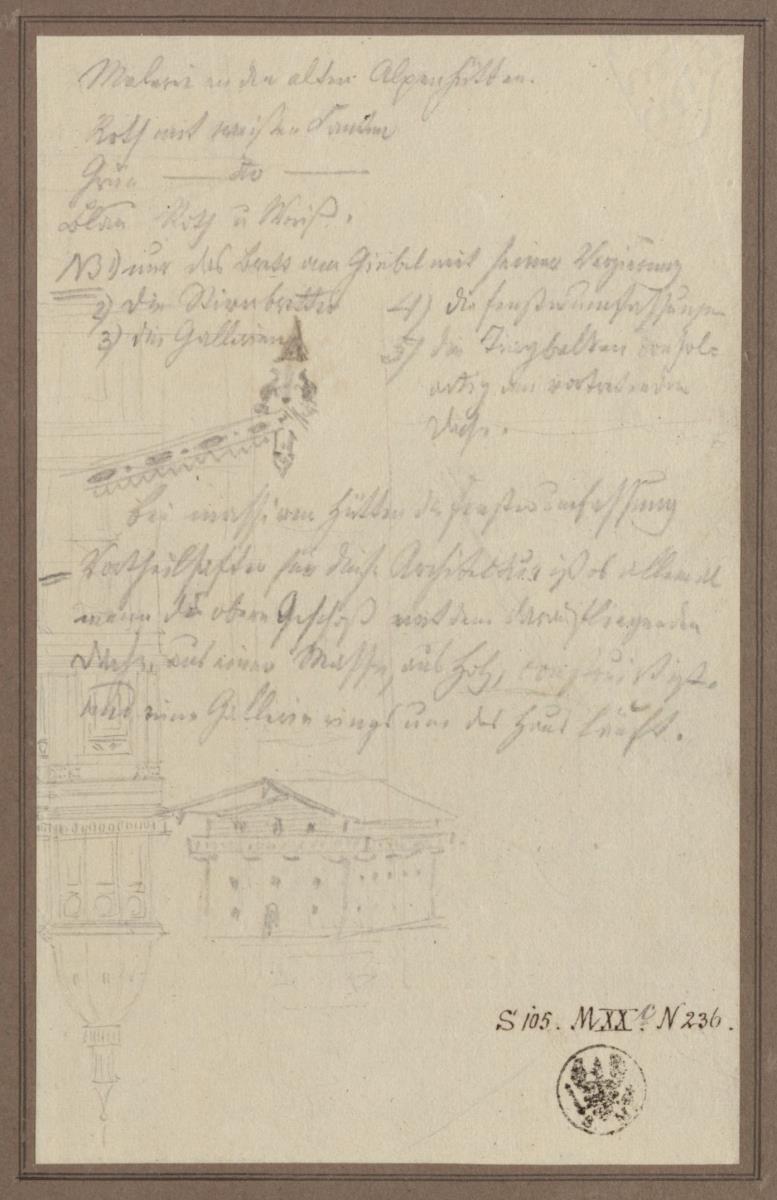 Malerei an den alten Alpenhütten.
Roth mit weißen Kanten
Grün — dto —
Blau Roth u Weiß.
NB 1) nur das Brett am Giebel mit seiner Verzierung
2) die Stirnbretter
3) die Gallerien
4) die Fensterumfassungen
5) die Tragbalken consol-
artig am vortretenden
Dache.
bei massiven Hütten die Fensterumfassung
Vortheilhafter für diese Architektur ist es allemal
wenn die obere Geschoß mit dem darauf liegenden
Dache, aus einer Masse, aus Holz, construirt ist.
und eine Gallerie rings um das Haus läuft.
S 105. M XX c. N 236.